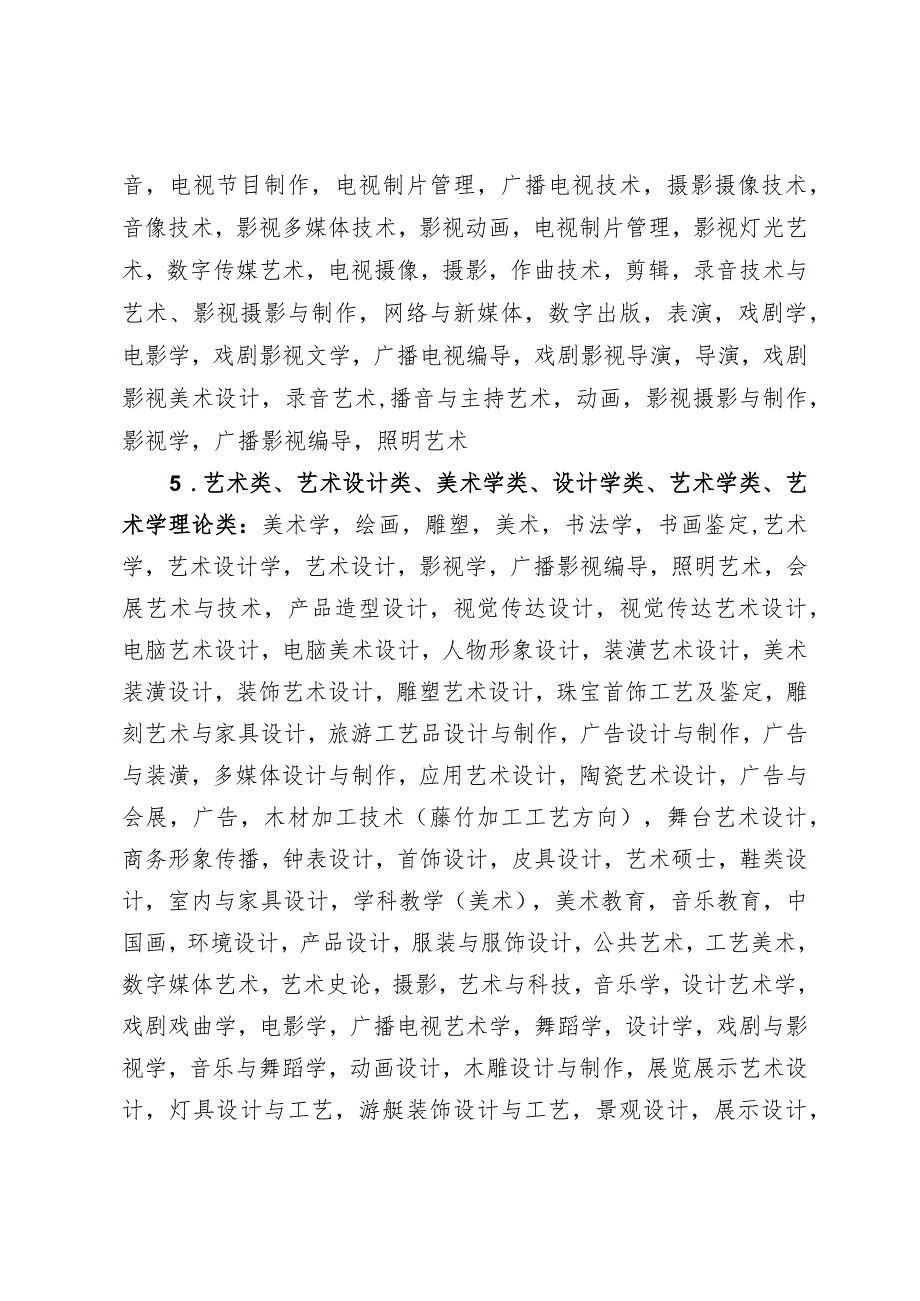 音，电视节目制作，电视制片管理，广播电视技术，摄影摄像技术，
音像技术，影视多媒体技术，影视动画，电视制片管理，影视灯光艺
术，数字传媒艺术，电视摄像，摄影，作曲技术，剪辑，录音技术与
艺术、影视摄影与制作，网络与新媒体，数字出版，表演，戏剧学，
电影学，戏剧影视文学，广播电视编导，戏剧影视导演，导演，戏剧
影视美术设计，录音艺术,播音与主持艺术，动画，影视摄影与制作，
影视学，广播影视编导，照明艺术
5 .艺术类、艺术设计类、美术学类、设计学类、艺术学类、艺
术学理论类：美术学，绘画，雕塑，美术，书法学，书画鉴定,艺术
学，艺术设计学，艺术设计，影视学，广播影视编导，照明艺术，会
展艺术与技术，产品造型设计，视觉传达设计，视觉传达艺术设计，
电脑艺术设计，电脑美术设计，人物形象设计，装潢艺术设计，美术
装潢设计，装饰艺术设计，雕塑艺术设计，珠宝首饰工艺及鉴定，雕
刻艺术与家具设计，旅游工艺品设计与制作，广告设计与制作，广告
与装潢，多媒体设计与制作，应用艺术设计，陶瓷艺术设计，广告与
会展，广告，木材加工技术（藤竹加工工艺方向），舞台艺术设计，
商务形象传播，钟表设计，首饰设计，皮具设计，艺术硕士，鞋类设
计，室内与家具设计，学科教学（美术），美术教育，音乐教育，中
国画，环境设计，产品设计，服装与服饰设计，公共艺术，工艺美术，
数字媒体艺术，艺术史论，摄影，艺术与科技，音乐学，设计艺术学，
戏剧戏曲学，电影学，广播电视艺术学，舞蹈学，设计学，戏剧与影
视学，音乐与舞蹈学，动画设计，木雕设计与制作，展览展示艺术设
计，灯具设计与工艺，游艇装饰设计与工艺，景观设计，展示设计，